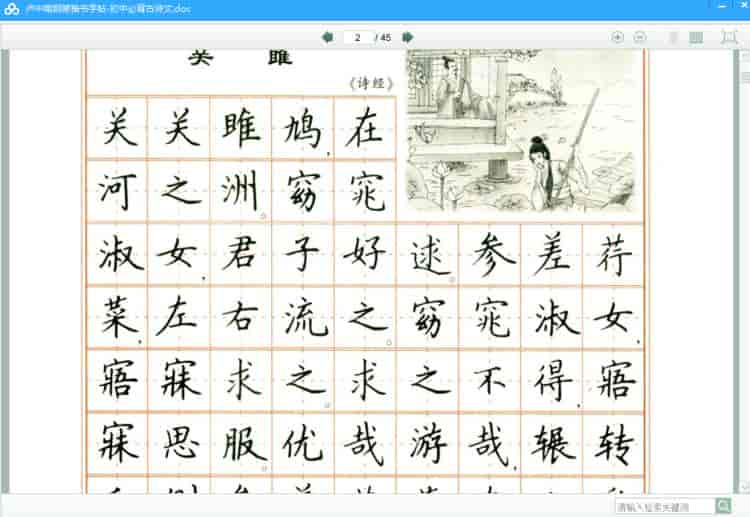 卢中南钢笔楷书字帖-初中必背古诗文.doc
2 / 45
关 雎
《诗经》
关关雎鸠,在
河之洲。窈窕
淑女,君子好逑。参差荇
菜,左右流之。窈窕淑女,
寤寐求之。求之不得,寤
寐思服。优哉游哉,辗转
请输入检索关键词